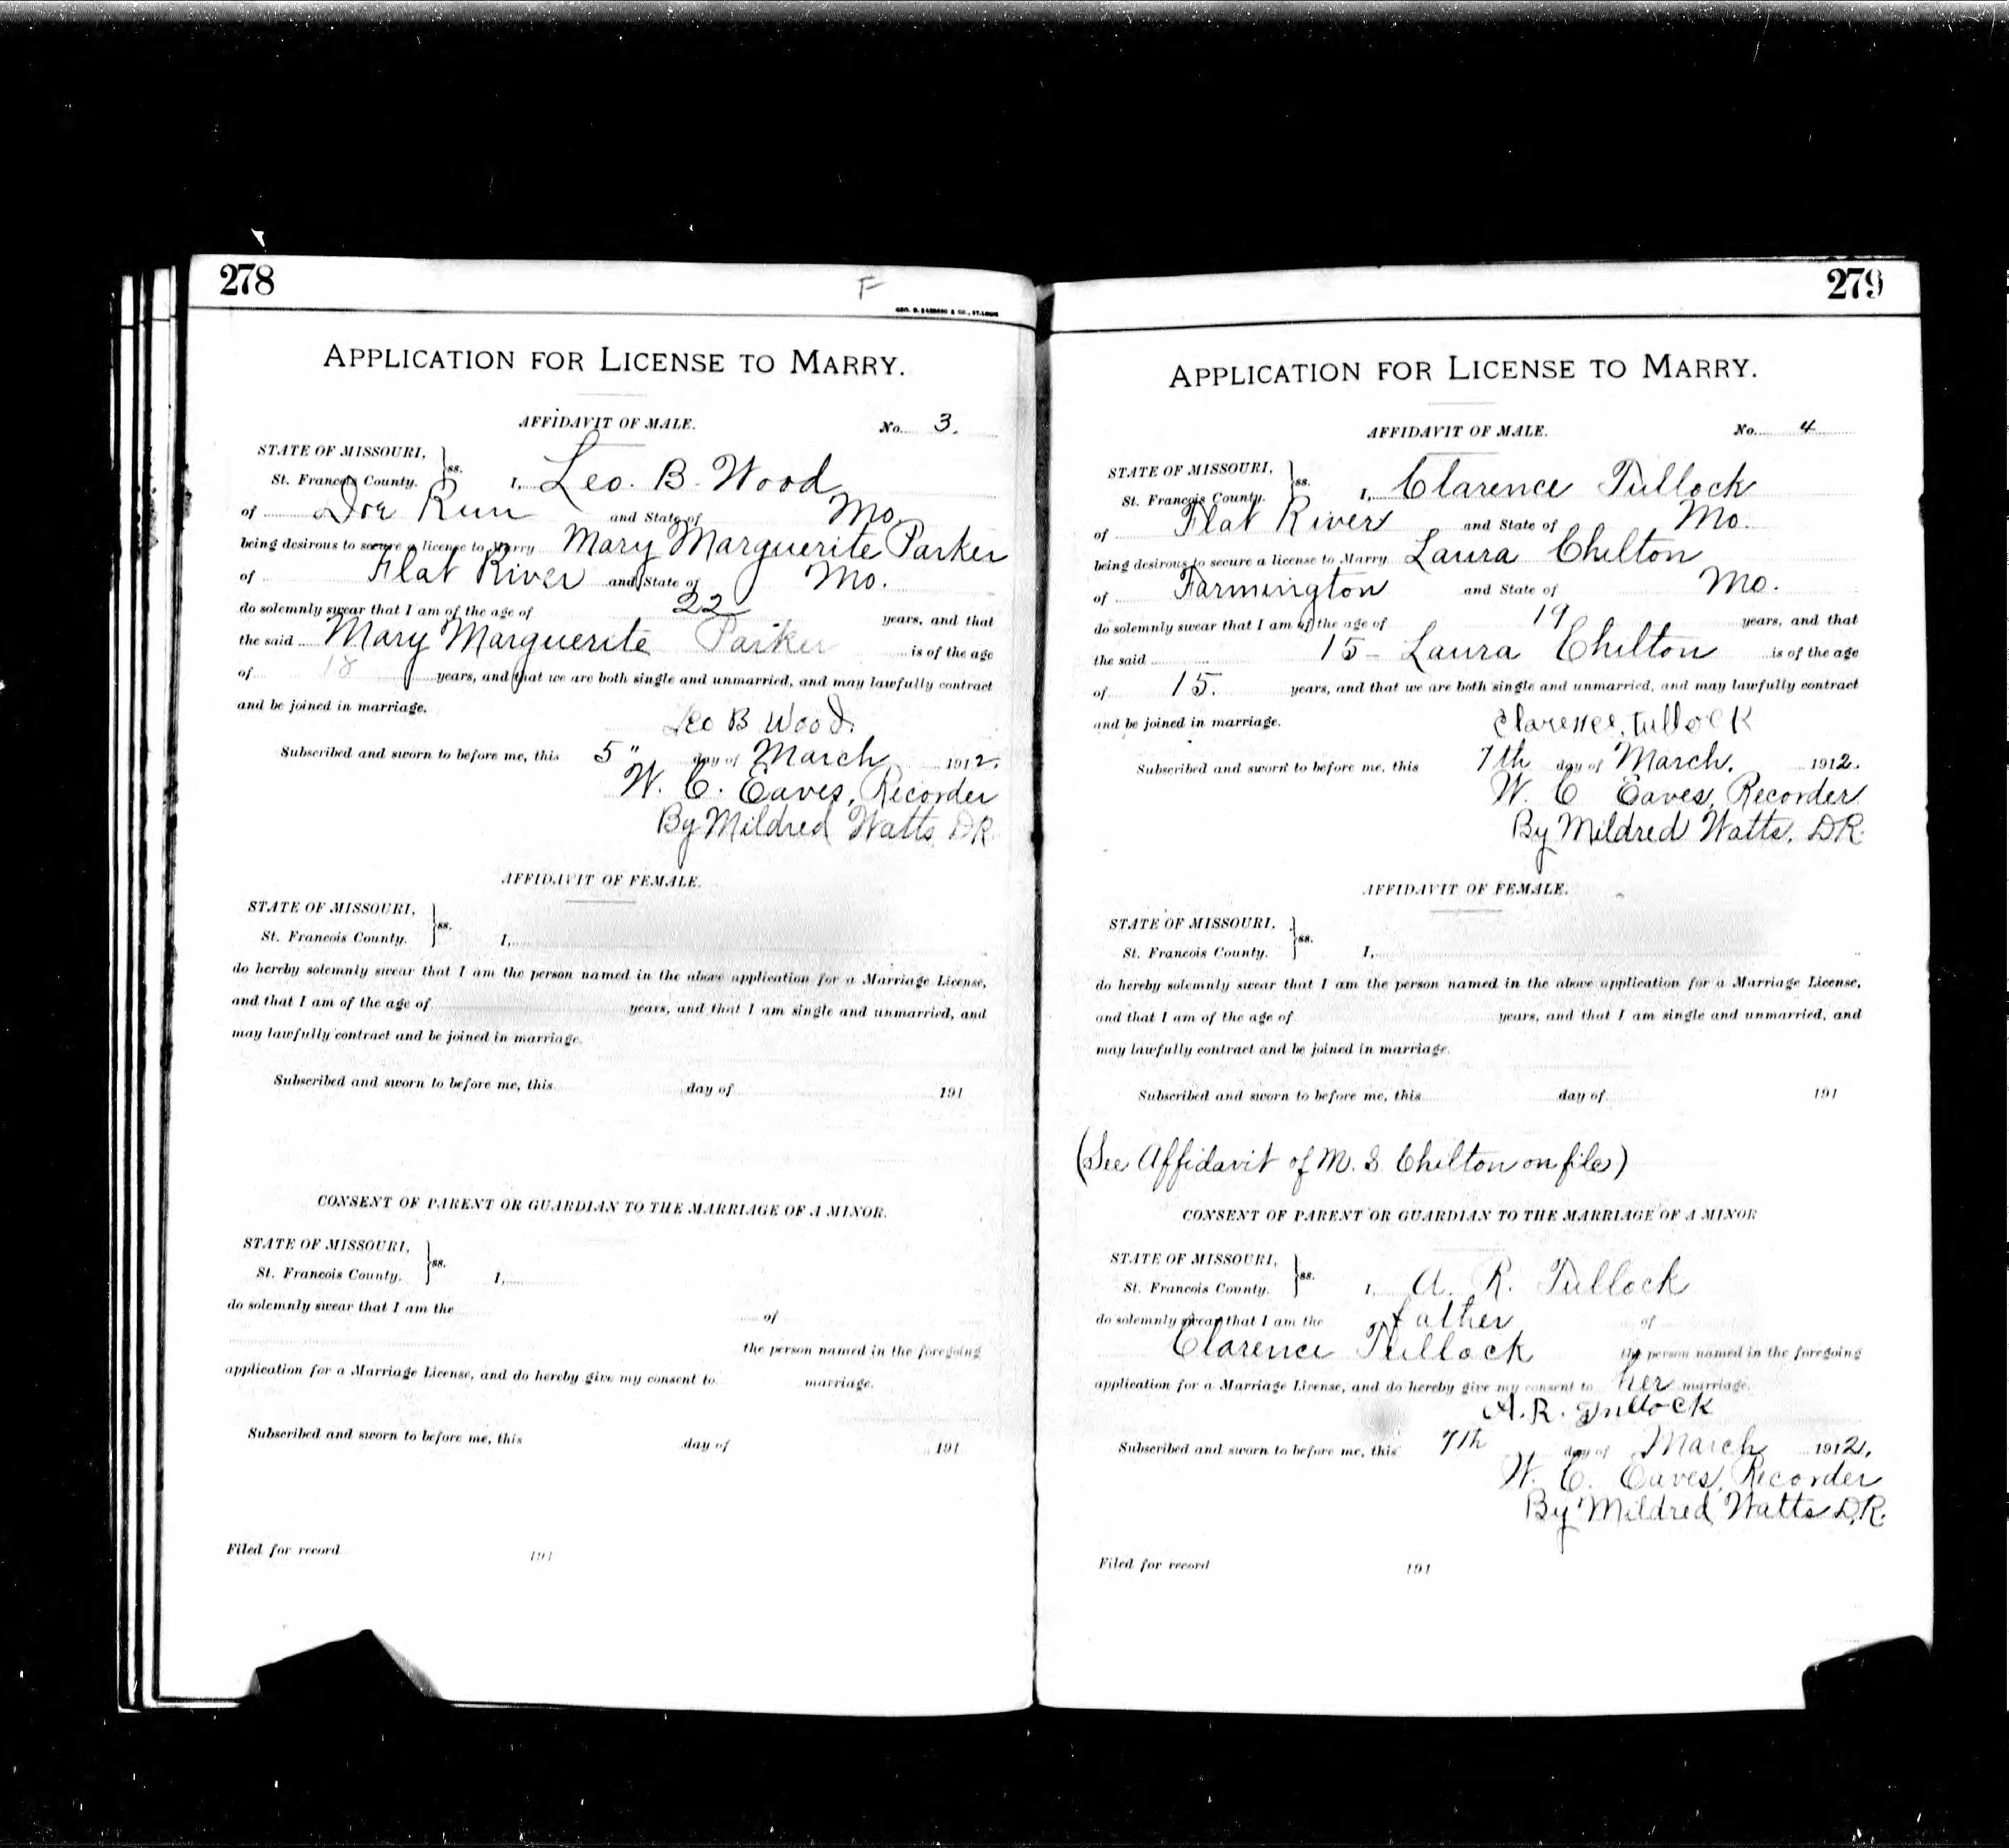 278
F
APPLICATION FOR LICENSE TO MARRY.
AFFIDAVIT OF MALE. No. 3.
STATE OF MISSOURI,
St. Francois County. } ss. I, Leo. B. Wood
of Doe Run and State of Mo.
being desirous to secure a license to Marry Mary Marguerite Parker
of Flat River and State of Mo.
do solemnly swear that I am of the age of 22 years, and that
the said Mary Marguerite Parker is of the age
of 18 years, and that we are both single and unmarried, and may lawfully contract
and be joined in marriage.
Leo B Wood.
Subscribed and sworn to before me, this 5" day of March 1912.
W. C. Eaves, Recorder
By Mildred Watts, DR.
AFFIDAVIT OF FEMALE.
STATE OF MISSOURI,
St. Francois County. } ss. I,
do hereby solemnly swear that I am the person named in the above application for a Marriage License,
and that I am of the age of years, and that I am single and unmarried, and
may lawfully contract and be joined in marriage.
Subscribed and sworn to before me, this day of 191
CONSENT OF PARENT OR GUARDIAN TO THE MARRIAGE OF A MINOR.
STATE OF MISSOURI,
St. Francois County. } ss. I,
do solemnly swear that I am the of
the person named in the foregoing
application for a Marriage License, and do hereby give my consent to marriage.
Subscribed and sworn to before me, this day of 191
Filed for record 191
279
APPLICATION FOR LICENSE TO MARRY.
AFFIDAVIT OF MALE. No. 4
STATE OF MISSOURI,
St. Francois County. } ss. I, Clarence Tullock
of Flat River and State of Mo.
being desirous to secure a license to Marry Laura Chilton
of Farmington and State of Mo.
do solemnly swear that I am of the age of 19 years, and that
the said 15 - Laura Chilton is of the age
of 15. years, and that we are both single and unmarried, and may lawfully contract
and be joined in marriage.
Clarence. Tullock
Subscribed and sworn to before me, this 7th day of March. 1912.
W. C Eaves, Recorder
By Mildred Watts, DR.
AFFIDAVIT OF FEMALE.
STATE OF MISSOURI,
St. Francois County. } ss. I,
do hereby solemnly swear that I am the person named in the above application for a Marriage License,
and that I am of the age of years, and that I am single and unmarried, and
may lawfully contract and be joined in marriage.
Subscribed and sworn to before me, this day of 191
(See Affidavit of M. S. Chilton on file)
CONSENT OF PARENT OR GUARDIAN TO THE MARRIAGE OF A MINOR
STATE OF MISSOURI,
St. Francois County. } ss. I, A. R. Tullock
do solemnly swear that I am the father of
Clarence Tullock the person named in the foregoing
application for a Marriage License, and do hereby give my consent to her marriage.
A. R. Tullock
Subscribed and sworn to before me, this 7th day of March 1912.
W. C. Eaves, Recorder
By Mildred Watts D.R.
Filed for record 191